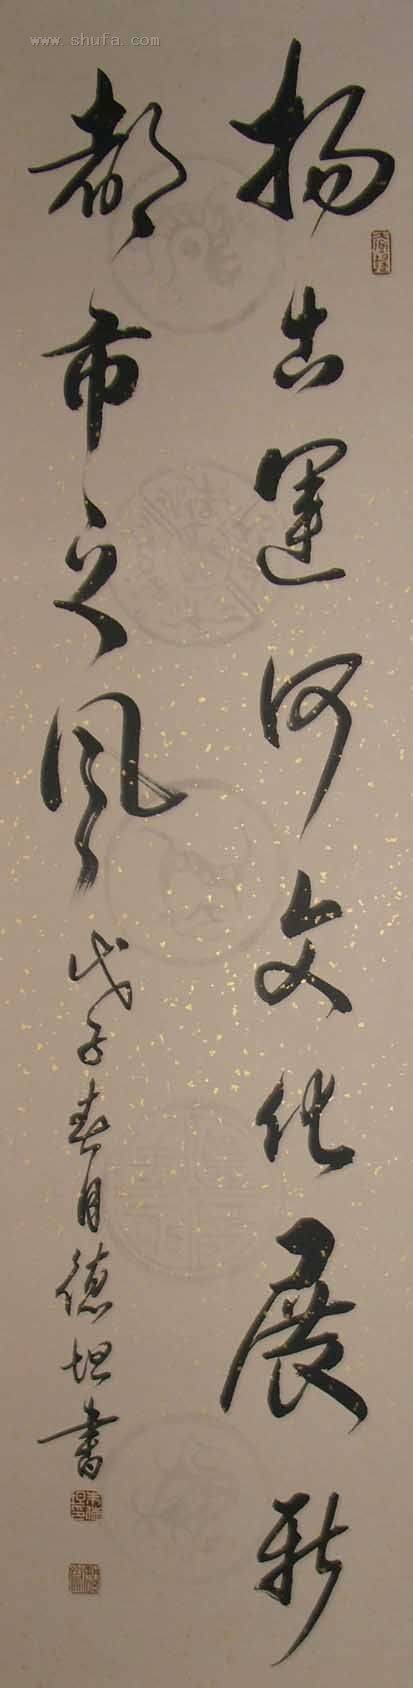 www.shufa.com
扬古运河文化展新
都市之风
戊子春月德坦书